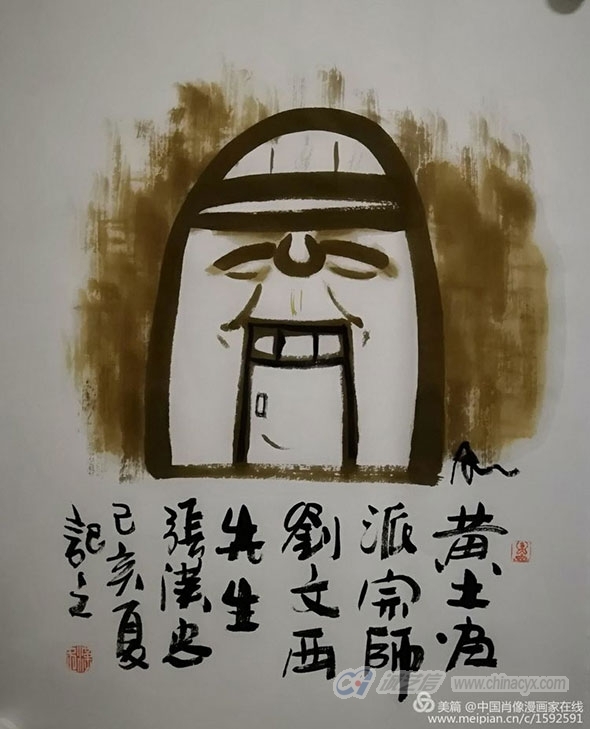 黄土画
派宗師
劉文西
先生
張漢忠
己亥夏
記之
诚艺信
www.chinacyx.com
美篇 @中国肖像漫画家在线
www.meipian.cn/c/1592591